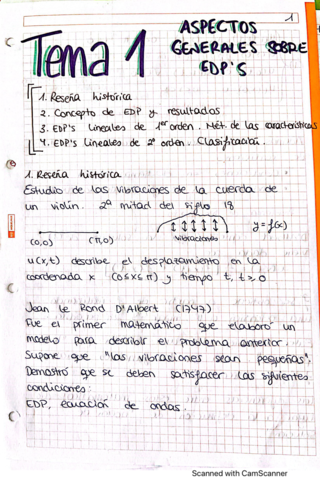 1
Tema 1
ASPECTOS
GENERALES SOBRE
EDP'S
1. Reseña histórica
2. Concepto de EDP y resultados
3. EDP's Lineales de 1er orden. Mét. de las características
4. EDP's Lineales de 2º orden. Clasificación.
1. Reseña histórica
Estudio de las vibraciones de la cuerda de
un violín. 2ª mitad del siglo 18
(0,0) (π,0) vibraciones y=f(x)
u(x,t) describe el desplazamiento en la
coordenada x (0≤x≤π) y tiempo t, t≥0
Jean Le Rond D'Albert (1747)
Fue el primer matemático que elaboró un
modelo para describir el problema anterior.
Supone que "las vibraciones sean pequeñas".
Demostró que se deben satisfacer las siguientes
condiciones:
EDP, ecuación de ondas.
Scanned with CamScanner